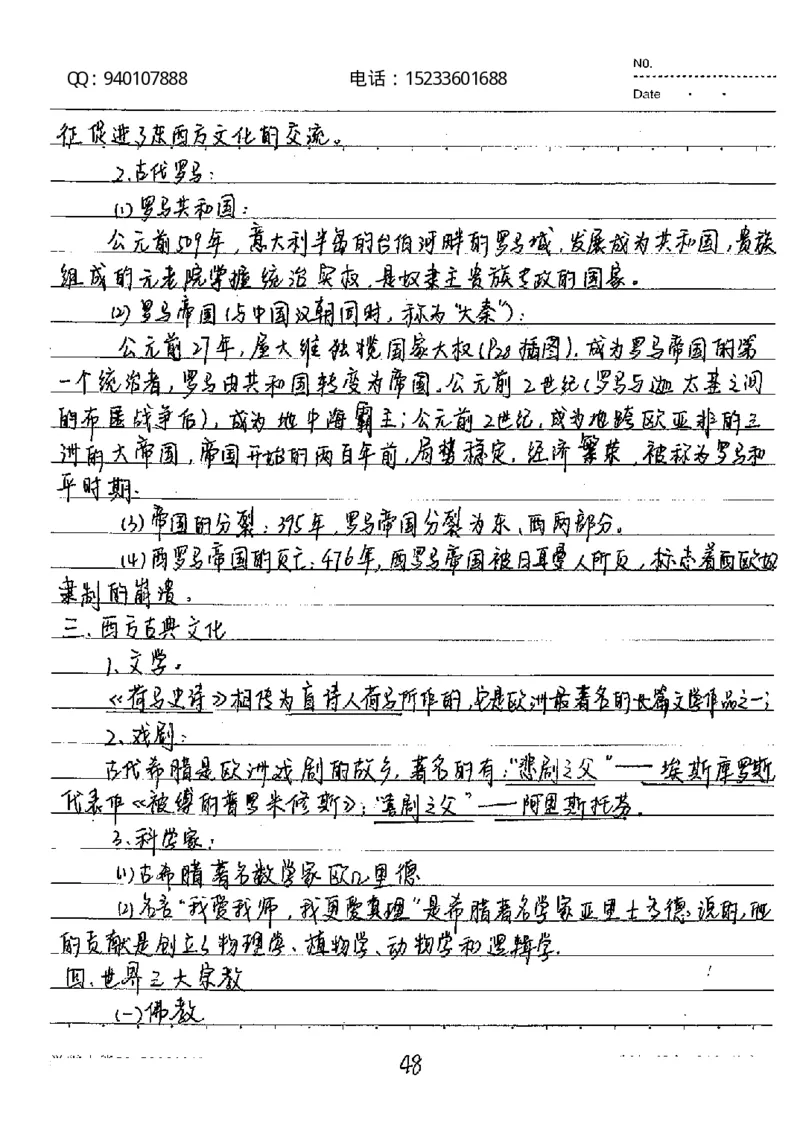 QQ：940107888
电话：15233601688
NO.
Date
征促进了东西方文化的交流。
2.古代罗马：
(1)罗马共和国：
公元前509年，意大利半岛的台伯河畔的罗马城，发展成为共和国，贵族
组成的元老院掌握统治实权，是奴隶主贵族专政的国家。
(2)罗马帝国(与中国汉朝同时，称为“大秦”)：
公元前27年，屋大维独揽国家大权(P28插图)，成为罗马帝国的第
一个统治者，罗马由共和国转变为帝国。公元前2世纪(罗马与迦太基之间
的布匿战争后)，成为地中海霸主；公元前2世纪，成为地跨欧亚非的三
洲的大帝国，帝国开始的两百年前，局势稳定，经济繁荣，被称为罗马和
平时期。
(3)帝国的分裂：395年，罗马帝国分裂为东、西两部分。
(4)西罗马帝国的灭亡：476年，西罗马帝国被日耳曼人所灭，标志着西欧奴
隶制的崩溃。
三、西方古典文化
1.文学。
《荷马史诗》相传为盲诗人荷马所作的，它是欧洲最著名的长篇文学作品之一；
2.戏剧：
古代希腊是欧洲戏剧的故乡，著名的有：“悲剧之父”——埃斯库罗斯
代表作《被缚的普罗米修斯》；“喜剧之父”——阿里斯托芬。
3.科学家：
(1)古希腊著名数学家欧几里德
(2)名言“我爱我师，我更爱真理”是希腊著名学家亚里士多德说的，他
的贡献是创立了物理学、植物学、动物学和逻辑学。
四、世界三大宗教
(一)佛教
48